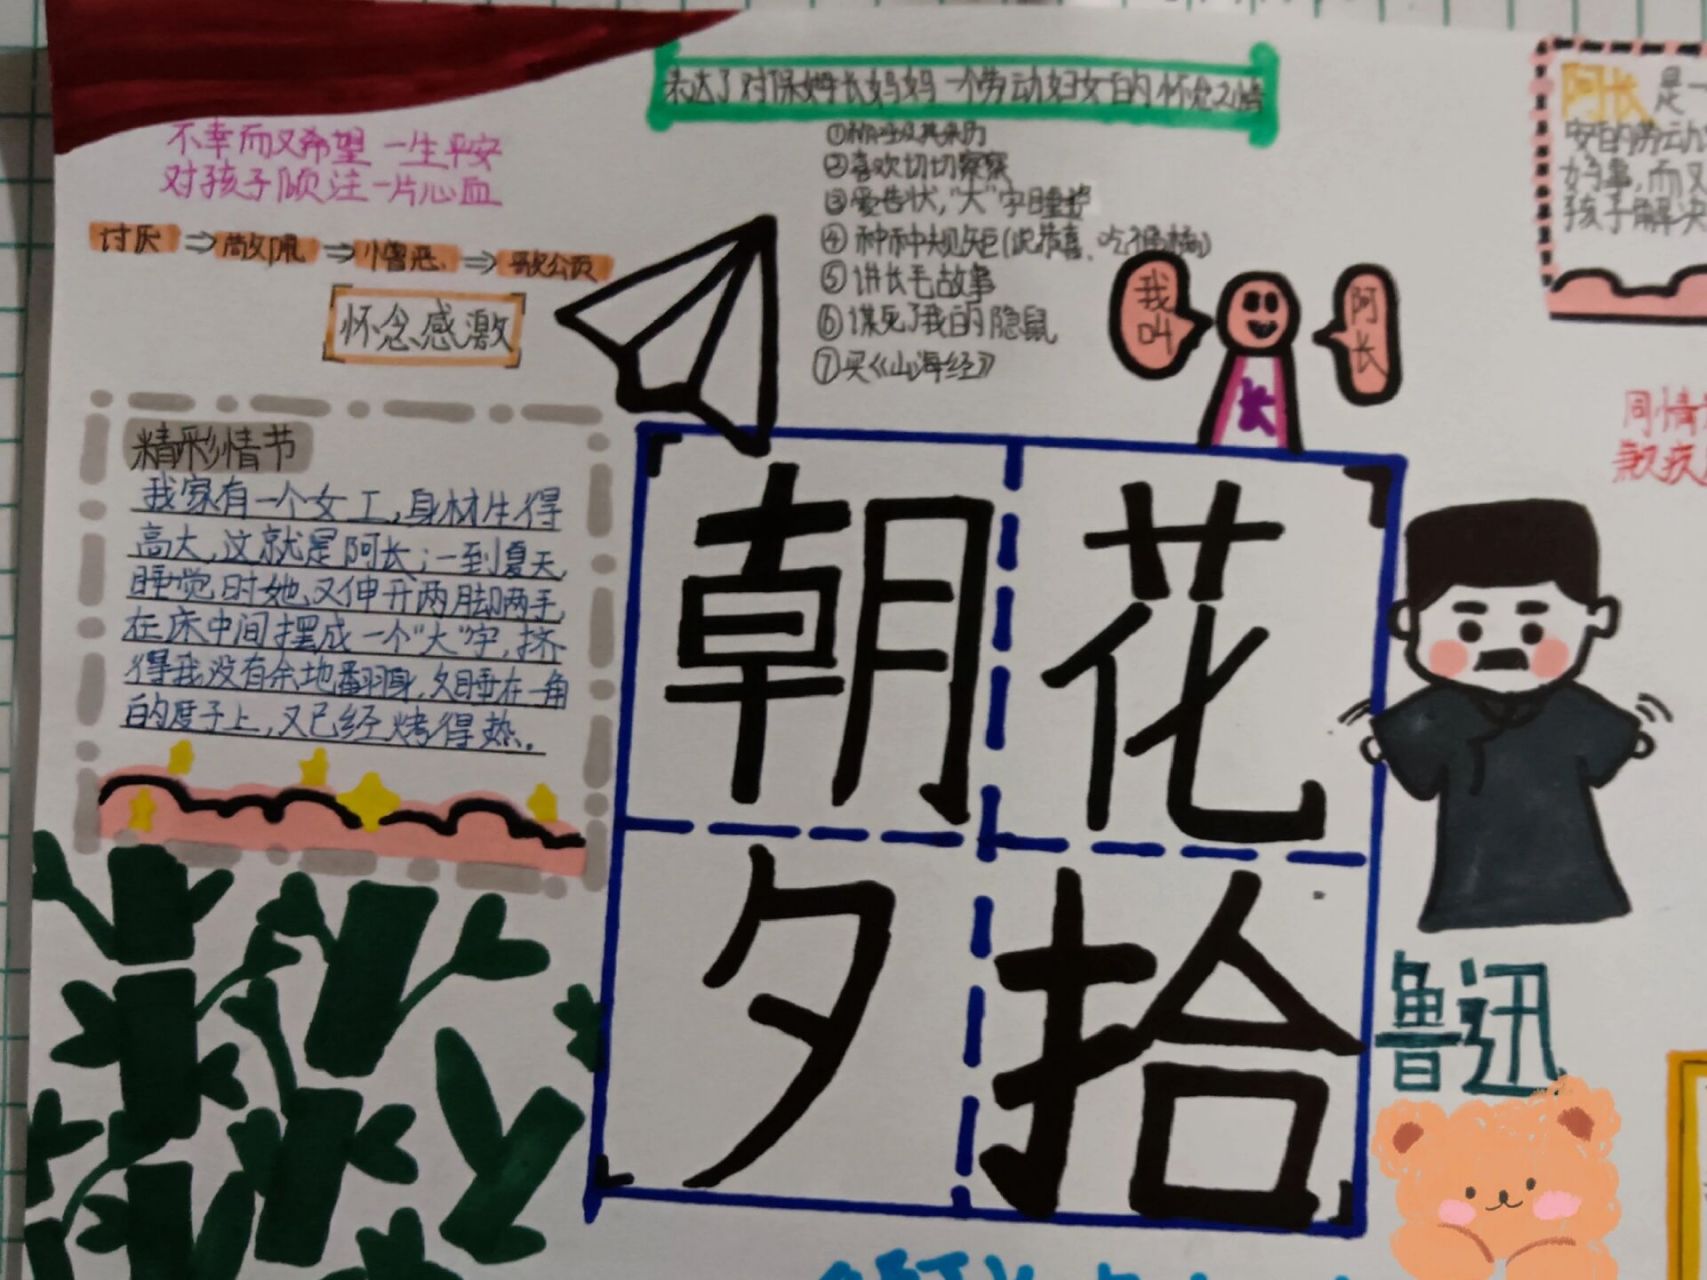 表达了对保姆长妈妈一个劳动妇女的怀念之情
不幸而又希望一生平安
对孩子倾注一片心血
讨厌⇒敬佩⇒憎恶⇒歌颂
怀念感激
①称呼及其来历
②喜欢切切察察
③爱告状，"大"字睡
④种种规矩(说恭喜、吃福橘)
⑤讲长毛故事
⑥谋死了我的隐鼠
⑦买《山海经》
我叫
阿长
长
阿长是一
安的劳动
好事，而又
孩子解决
同情
精彩情节
我家有一个女工，身材生得
高大，这就是阿长；一到夏天，
睡觉时她又伸开两脚两手，
在床中间摆成一个"大"字，挤
得我没有余地翻身，夕睡在一角
的席子上，又已经烤得热。
朝花
夕拾
鲁迅